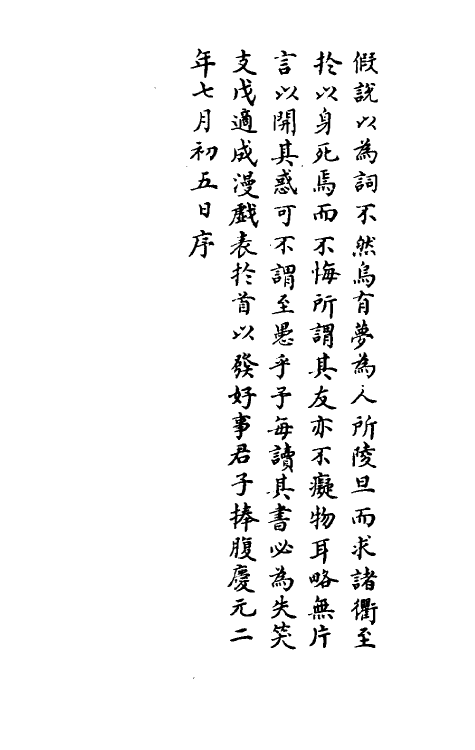 假說以為詞不然烏有夢為人所陵旦而求諸衢至
扵以身死焉而不悔所謂其友亦不癡物耳略無片
言以開其惑可不謂至愚乎予每讀其書必為失笑
支戊適成漫戲表扵首以發好事君子捧腹慶元二
年七月初五日序